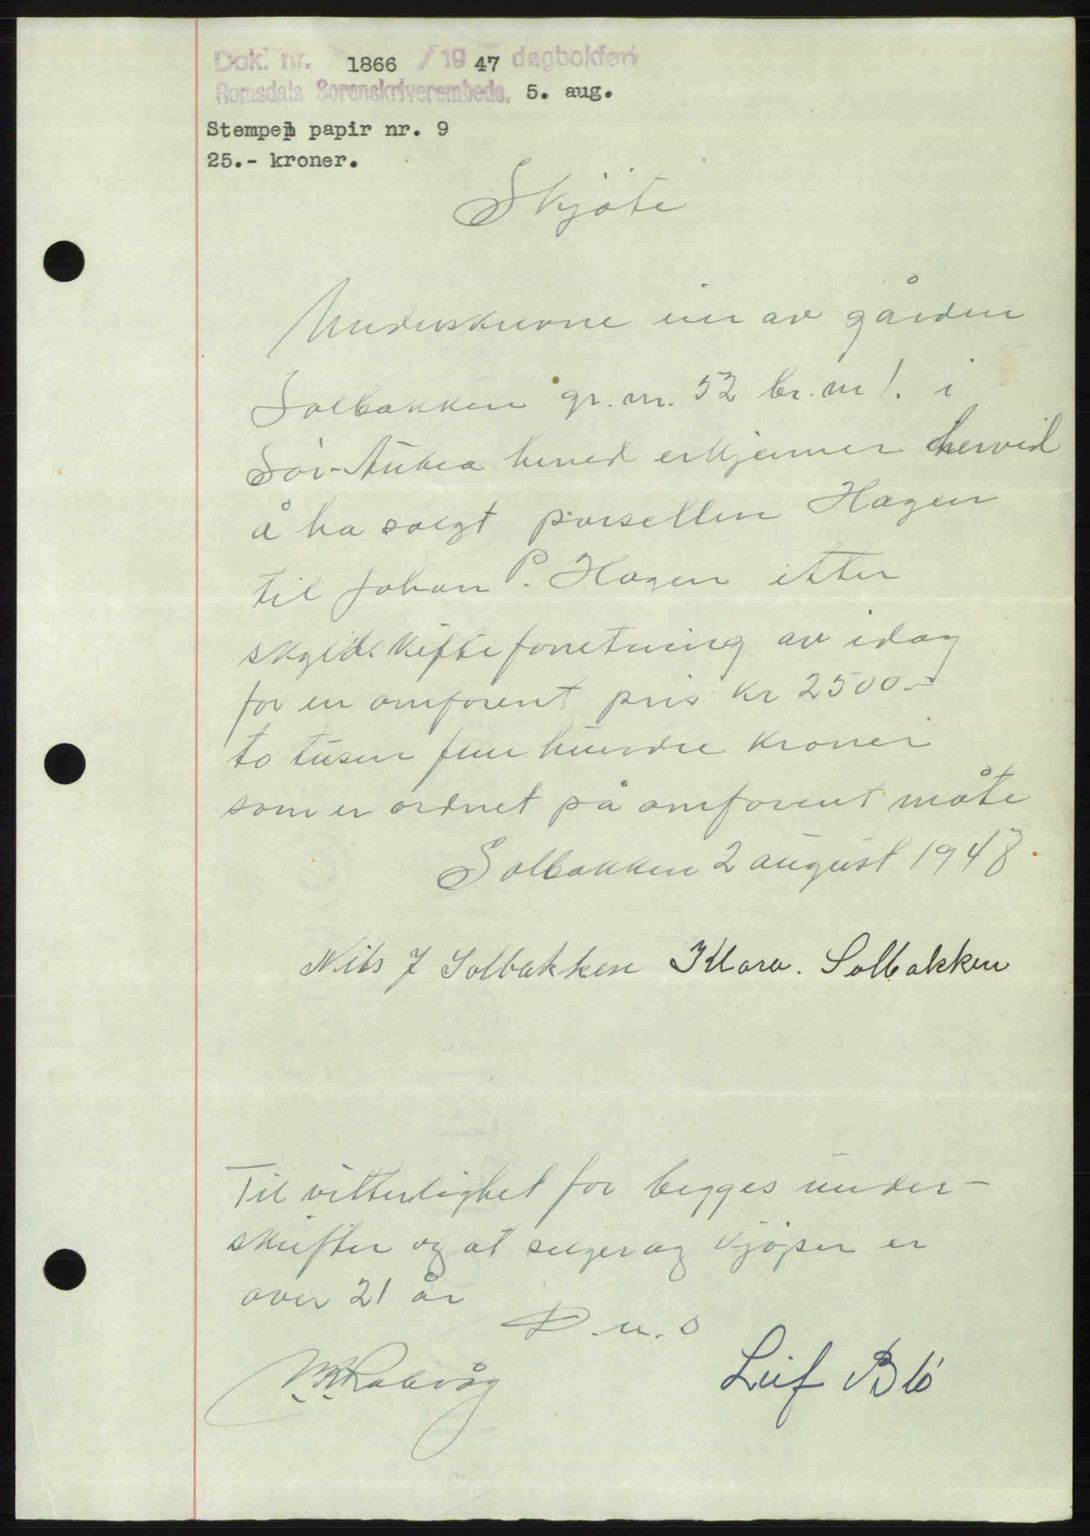 Dok. nr. 1866 / 19 47 dagbokført
Romsdals Sorenskriverembede, 5. aug.
Stempel papir nr. 9
25.- kroner.
Skjøte
Underskrevne eier av gården
Solbakken gr. nr. 52 br. nr 1. i
Sør-Aukra herved erkjenner herved
å ha solgt parsellen Hagen
til Johan P. Hagen etter
skyldskifteforretning av idag
for en omforent pris kr 2500.-
to tusen fem hundre kroner
som er ordnet på omforent måte
Solbakken 2 august 1948.
Nils J Solbakken Klara. Solbakken
Til vitterlighet for begges under-
skrifter og at selger og kjøper er
over 21 år
D. u. s
Leif Blø